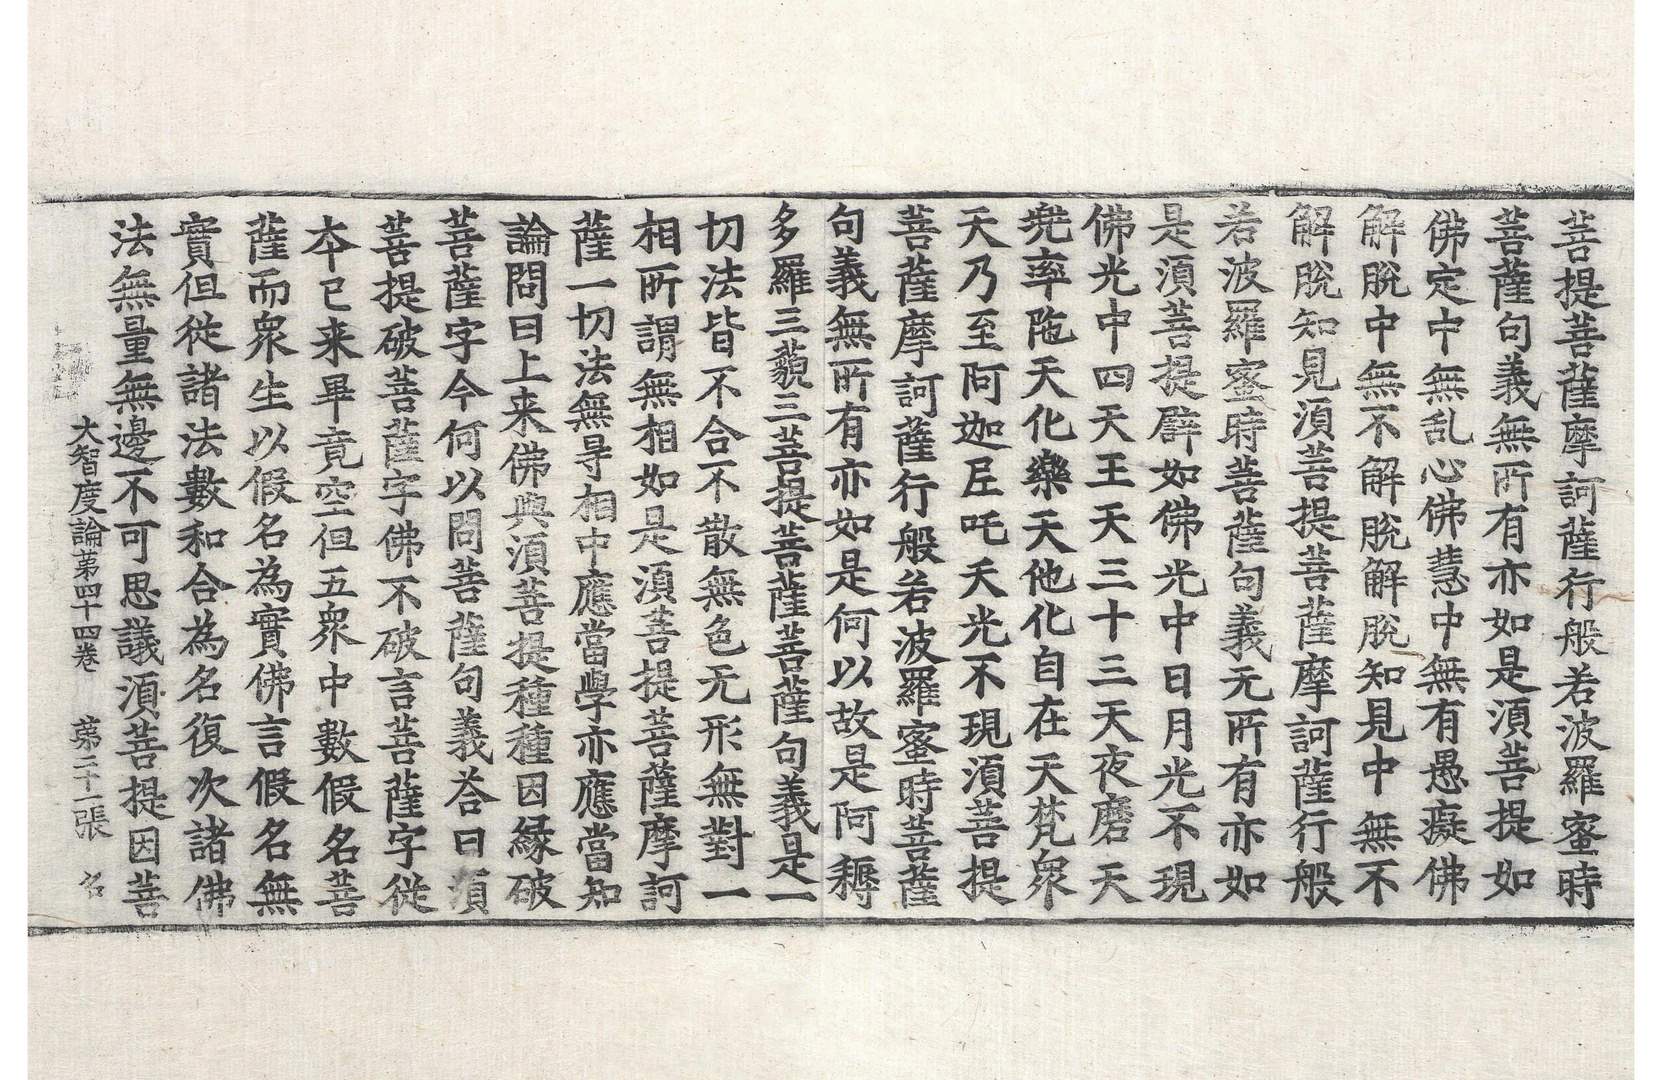 菩提菩薩摩訶薩行般若波羅蜜時
菩薩句義無所有亦如是湏菩提如
佛定中無乱心佛慧中無有愚癡佛
解脫中無不解脫解脫知見中無不
解脫知見湏菩提菩薩摩訶薩行般
若波羅蜜時菩薩句義无所有亦如
是湏菩提譬如佛光中日月光不現
佛光中四天王天三十三天夜磨天
兠率陁天化樂天他化自在天梵衆
天乃至阿迦尼吒天光不現湏菩提
菩薩摩訶薩行般若波羅蜜時菩薩
句義無所有亦如是何以故是阿耨
多羅三藐三菩提菩薩菩薩句義是一
切法皆不合不散無色无形無對一
相所謂無相如是湏菩提菩薩摩訶
薩一切法無㝵相中應當學亦應當知
論問曰上来佛與湏菩提種種因緣破
菩薩字今何以問菩薩句義荅曰湏
菩提破菩薩字佛不破言菩薩字從
本已来畢竟空但五衆中數假名菩
薩而衆生以假名為實佛言假名無
實但從諸法數和合為名復次諸佛
法無量無邊不可思議湏菩提因菩
大智度論苐四十四卷　苐二十一張　名